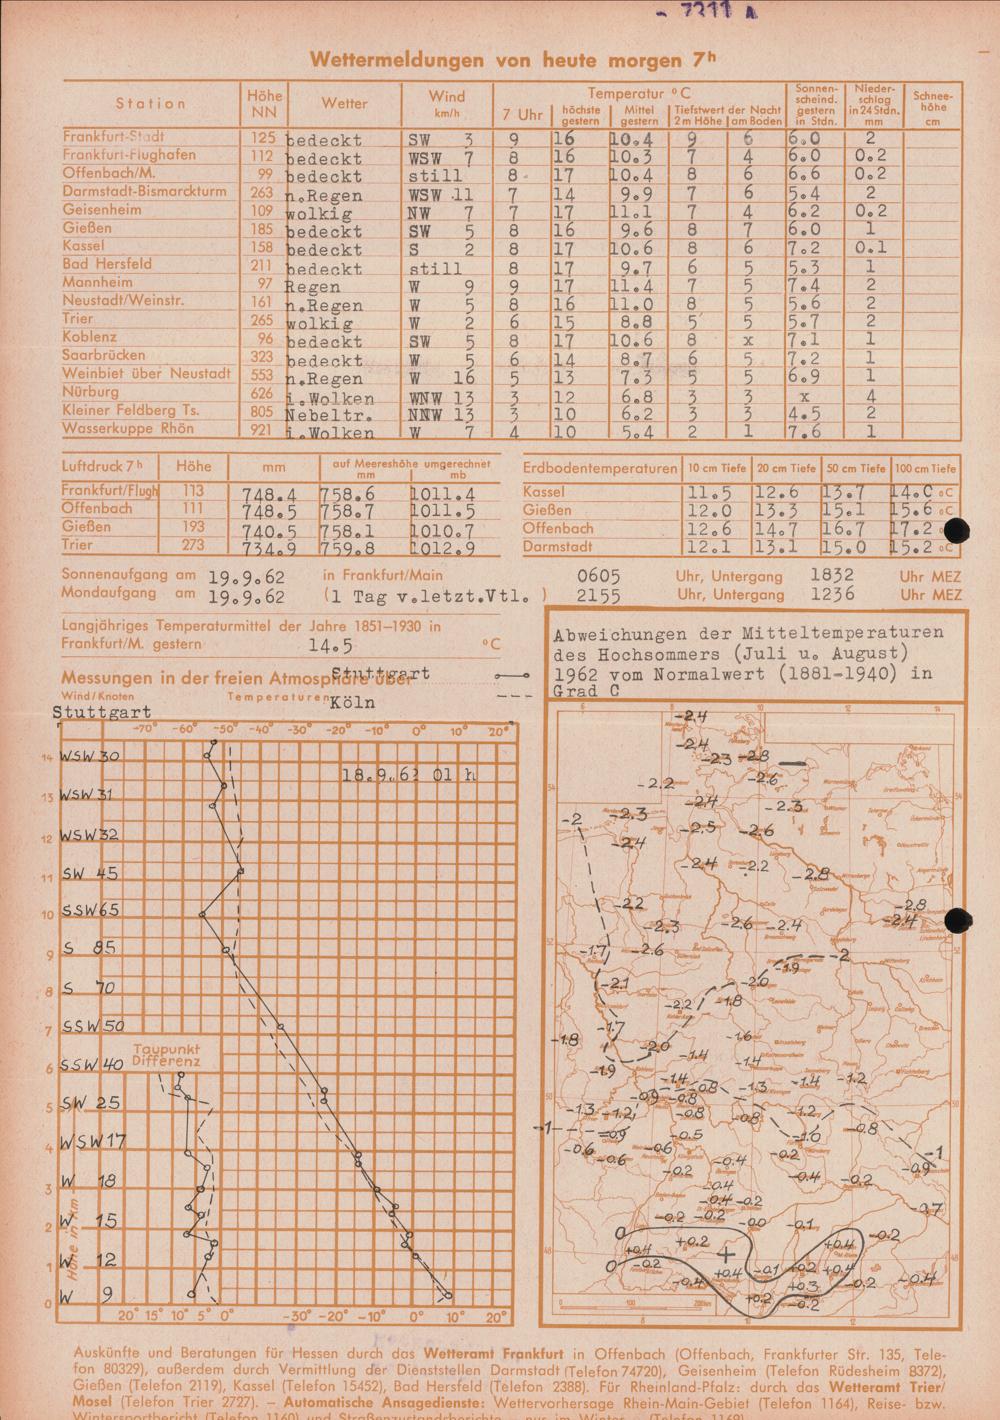 7311 A
Wettermeldungen von heute morgen 7h
Station Höhe NN Wetter Wind km/h Temperatur °C Sonnenscheind. gestern in Stdn. Niederschlag in 24 Stdn. mm Schneehöhe cm
7 Uhr höchste gestern Mittel gestern Tiefstwert der Nacht 2 m Höhe am Boden
Frankfurt-Stadt 125 bedeckt SW 3 9 16 10.4 9 6 6.0 2
Frankfurt-Flughafen 112 bedeckt WSW 7 8 16 10.3 7 4 6.0 0.2
Offenbach/M. 99 bedeckt still 8 17 10.4 8 6 6.6 0.2
Darmstadt-Bismarckturm 263 n.Regen WSW 11 7 14 9.9 7 6 5.4 2
Geisenheim 109 wolkig NW 7 7 17 11.1 7 4 6.2 0.2
Gießen 185 bedeckt SW 5 8 16 9.6 8 7 6.0 1
Kassel 158 bedeckt S 2 8 17 10.6 8 6 7.2 0.1
Bad Hersfeld 211 bedeckt still 8 17 9.7 6 5 5.3 1
Mannheim 97 Regen W 9 9 17 11.4 7 5 7.4 2
Neustadt/Weinstr. 161 n.Regen W 5 8 16 11.0 8 5 5.6 2
Trier 265 wolkig W 2 6 15 8.8 5 5 5.7 2
Koblenz 96 bedeckt SW 5 8 17 10.6 8 x 7.1 1
Saarbrücken 323 bedeckt W 5 6 14 8.7 6 5 7.2 1
Weinbiet über Neustadt 553 n.Regen W 16 5 13 7.3 5 5 6.9 1
Nürburg 626 i.Wolken WNW 13 3 12 6.8 3 3 x 4
Kleiner Feldberg Ts. 805 Nebeltr. NNW 13 3 10 6.2 3 3 4.5 2
Wasserkuppe Rhön 921 i.Wolken W 7 4 10 5.4 2 1 7.6 1
Luftdruck 7h Höhe mm auf Meereshöhe umgerechnet mm mb
Frankfurt/Flugh 113 748.4 758.6 1011.4
Offenbach 111 748.5 758.7 1011.5
Gießen 193 740.5 758.1 1010.7
Trier 273 734.9 759.8 1012.9
Erdbodentemperaturen 10 cm Tiefe 20 cm Tiefe 50 cm Tiefe 100 cm Tiefe
Kassel 11.5 12.6 13.7 14.0 °C
Gießen 12.0 13.3 15.1 15.6 °C
Offenbach 12.6 14.7 16.7 17.2
Darmstadt 12.1 13.1 15.0 15.2 °C
Sonnenaufgang am 19.9.62 in Frankfurt/Main 0605 Uhr, Untergang 1832 Uhr MEZ
Mondaufgang am 19.9.62 (1 Tag v.letzt.Vtl. ) 2155 Uhr, Untergang 1236 Uhr MEZ
Langjähriges Temperaturmittel der Jahre 1851–1930 in
Frankfurt/M. gestern 14.5 °C
Messungen in der freien Atmosphäre über Stuttgart
Wind/Knoten Temperaturen Köln
Stuttgart
-70° -60° -50° -40° -30° -20° -10° 0° 10° 20°
18.9.62 01 h
14 WSW 30
13 WSW 31
12 WSW 32
11 SW 45
10 SSW 65
9 S 85
8 S 70
7 SSW 50
6 SSW 40
Taupunkt
Differenz
5 SW 25
4 WSW 17
3 W 18
2 W 15
1 W 12
0 W 9
Höhe in km
20° 15° 10° 5° 0° -30° -20° -10° 0° 10° 20°
Abweichungen der Mitteltemperaturen
des Hochsommers (Juli u. August)
1962 vom Normalwert (1881-1940) in
Grad C
6 8 10 12 14
-2.4
-2.4
-2.3 -2.8
-2.2 -2.6
-2.4 -2.3
-2 -2.3
-2.5 -2.6
-2.4
-2.4 -2.2 -2.8
-2.2 -2.8
-2.3 -2.6 -2.4 -2.4
-1.7 -2.6 -2
-1.9
-2.1 -2.0
-2.2 -1.8
-1.7
-1.8 -2.0 -1.6
-1.4 -1.4
-1.9
-1.4 -0.8 -1.3 -1.4 -1.2
-0.9 -0.8
-1.3 -1.2 -0.8 -0.8 -1.2
-1 -0.9 -0.5 -1.0 -0.8
-0.6 -0.6 -0.2 -1
-0.6 -0.2 -0.4 -0.9
-0.4 -0.4 -0.2
-0.4 -0.2
-0.2 -0.2 -0.0 -0.1 -0.7
0 +0.2 -0.2
+0.4 + +0.4
0 -0.2 +0.4 -0.1 +0.2 +0.4
-0.4 +0.3 -0.2 -0.4
+0.2 -0.2
0 100 200km
Auskünfte und Beratungen für Hessen durch das Wetteramt Frankfurt in Offenbach (Offenbach, Frankfurter Str. 135, Tele-
fon 80329), außerdem durch Vermittlung der Dienststellen Darmstadt (Telefon 74720), Geisenheim (Telefon Rüdesheim 8372),
Gießen (Telefon 2119), Kassel (Telefon 15452), Bad Hersfeld (Telefon 2388). Für Rheinland-Pfalz: durch das Wetteramt Trier/
Mosel (Telefon Trier 2727). – Automatische Ansagedienste: Wettervorhersage Rhein-Main-Gebiet (Telefon 1164), Reise- bzw.
Wintersportbericht (Telefon 1160) und Straßenzustandsberichte – nur im Winter – (Telefon 1169)